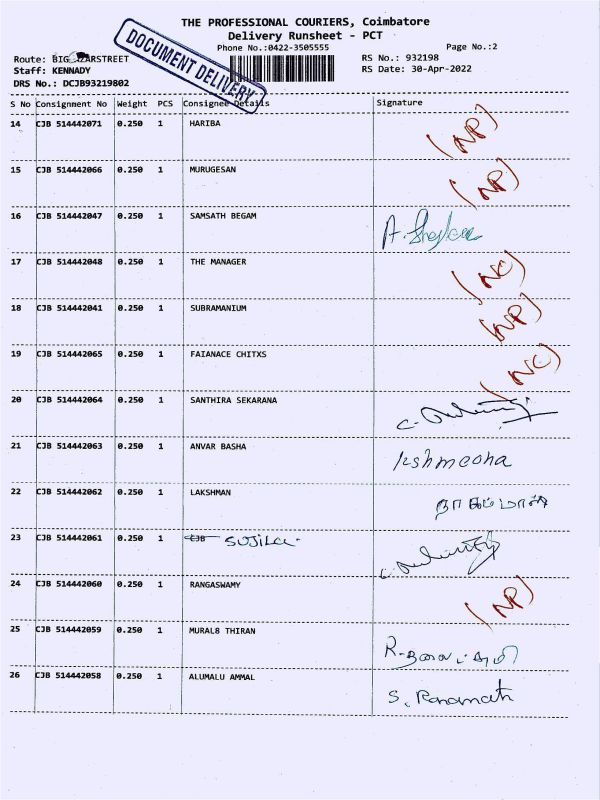 THE PROFESSIONAL COURIERS, Coimbatore
Delivery Runsheet - PCT
Phone No.:0422-3505555 Page No.:2
Route: BIG
Staff: KENNADY
DRS No.: DCJB93219802
RS No.: 932198
RS Date: 30-Apr-2022
DOCUMENT DELIVERY
S No Consignment No Weight PCS Consignee Details Signature
14 CJB 514442071 0.250 1 HARIBA (NP)
15 CJB 514442066 0.250 1 MURUGESAN (NP)
16 CJB 514442047 0.250 1 SAMSATH BEGAM A.
17 CJB 514442048 0.250 1 THE MANAGER (NC)
18 CJB 514442041 0.250 1 SUBRAMANIUM (NP)
19 CJB 514442065 0.250 1 FAIANACE CHITXS (NC)
20 CJB 514442064 0.250 1 SANTHIRA SEKARANA C.
21 CJB 514442063 0.250 1 ANVAR BASHA
22 CJB 514442062 0.250 1 LAKSHMAN
23 CJB 514442061 0.250 1 CJB SUJILA C.
24 CJB 514442060 0.250 1 RANGASWAMY (NP)
25 CJB 514442059 0.250 1 MURAL8 THIRAN R.
26 CJB 514442058 0.250 1 ALUMALU AMMAL S.